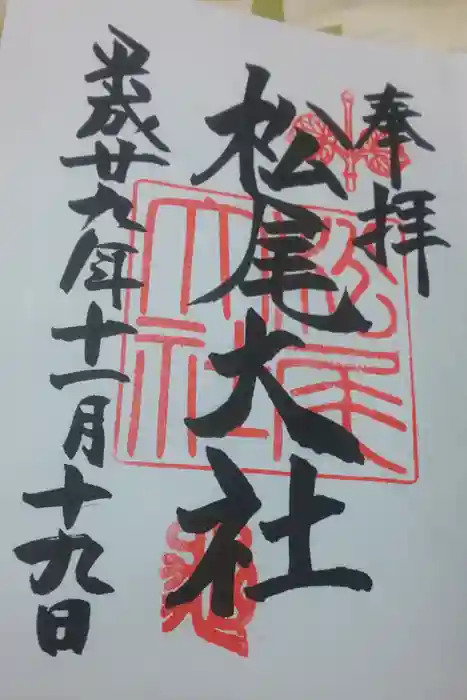 奉拝
松尾大社
松尾大社
平成廿九年十一月十九日